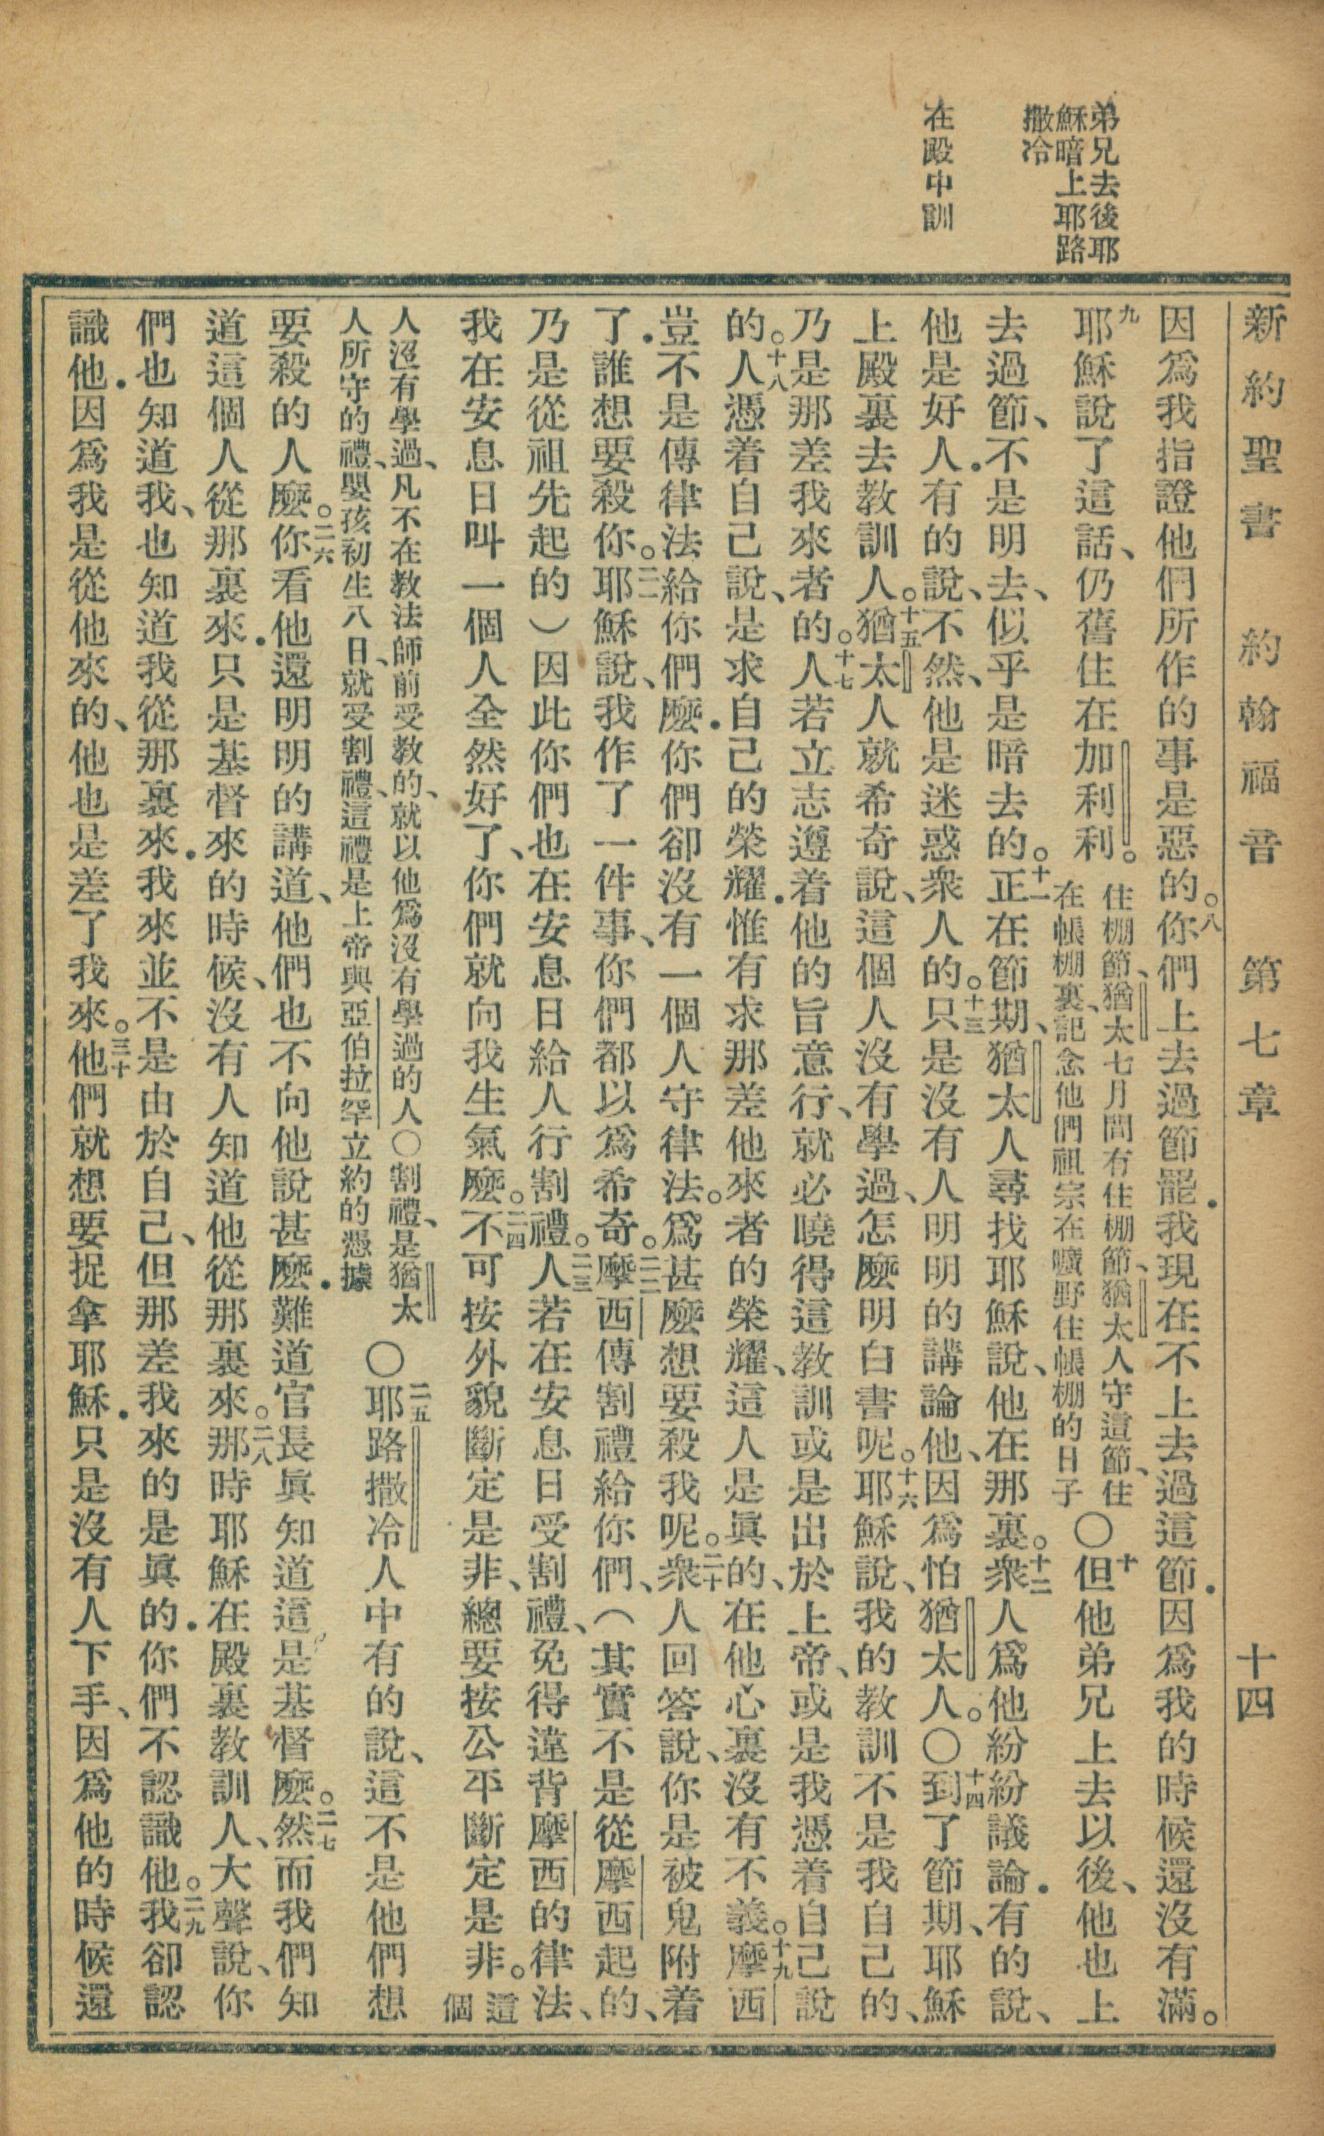 新約聖書　約翰福音　第七章　十四
弟兄去後耶
穌暗上耶路
撒冷
在殿中訓
因爲我指證他們所作的事是惡的。八你們上去過節罷．我現在不上去過這節．因爲我的時候還沒有滿。
九耶穌說了這話、仍舊住在加利利。
住棚節、猶太七月間有住棚節、猶太人守這節、住
在帳棚裏、記念他們祖宗在曠野住帳棚的日子
〇十但他弟兄上去以後、他也上
去過節、不是明去、似乎是暗去的。十一正在節期、猶太人尋找耶穌說、他在那裏。十二衆人爲他紛紛議論．有的說、
他是好人．有的說、不然、他是迷惑衆人的。十三只是沒有人明明的講論他、因爲怕猶太人。〇十四到了節期、耶穌
上殿裏去教訓人。十五猶太人就希奇說、這個人沒有學過、怎麼明白書呢。十六耶穌說、我的教訓不是我自己的、
乃是那差我來者的。十七人若立志遵着他的旨意行、就必曉得這教訓或是出於上帝、或是我憑着自己說
的。十八人憑着自己說、是求自己的榮耀．惟有求那差他來者的榮耀、這人是眞的、在他心裏沒有不義。十九摩西
豈不是傳律法給你們麼．你們卻沒有一個人守律法。爲甚麼想要殺我呢。二十衆人回答說、你是被鬼附着
了．誰想要殺你。二一耶穌說、我作了一件事、你們都以爲希奇。二二摩西傳割禮給你們、（其實不是從摩西起的、
乃是從祖先起的）因此你們也在安息日給人行割禮。二三人若在安息日受割禮、免得違背摩西的律法、
我在安息日叫一個人全然好了、你們就向我生氣麼。二四不可按外貌斷定是非、總要按公平斷定是非。
這
個
人沒有學過、凡不在教法師前受教的、就以他爲沒有學過的人〇割禮、是猶太
人所守的禮、嬰孩初生八日、就受割禮、這禮是上帝與亞伯拉罕立約的憑據
〇二五耶路撒冷人中有的說、這不是他們想
要殺的人麼。二六你看他還明明的講道、他們也不向他說甚麼．難道官長眞知道這是基督麼。二七然而我們知
道這個人從那裏來．只是基督來的時候、沒有人知道他從那裏來。二八那時耶穌在殿裏教訓人、大聲說、你
們也知道我、也知道我從那裏來．我來並不是由於自己、但那差我來的是眞的．你們不認識他。二九我卻認
識他．因爲我是從他來的、他也是差了我來。三十他們就想要捉拿耶穌．只是沒有人下手、因爲他的時候還